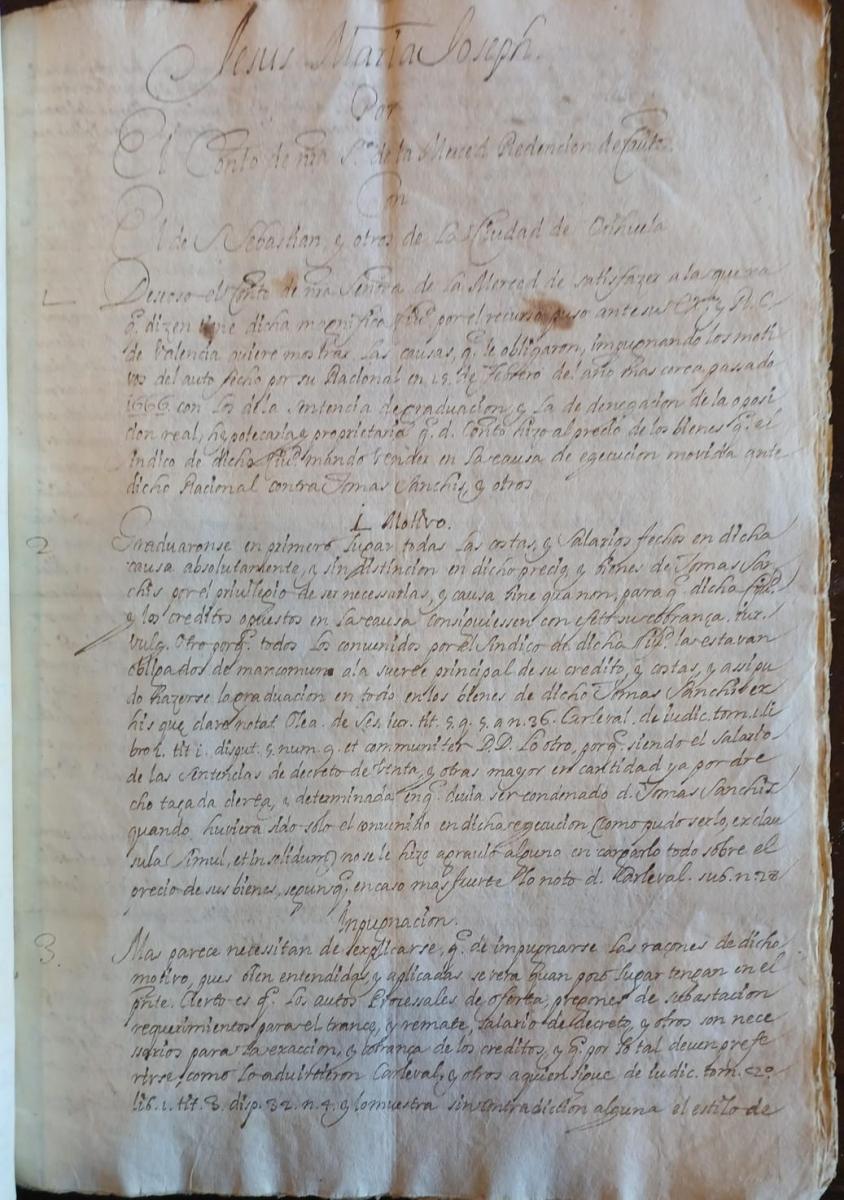 Jesus Maria Joseph.
Por
El Conto de nra Sra de la Merced Redencion de Cauts.
Con
El de S Sebastian, y otros de La Ciudad de Orihuela
1 Deseoso el Conto de nra Senora de la Merced de satisfazer a las
q. dizen tiene dicha magnifica Ciud. por el recurso puso ante sus Exa. y R. C.
de Valencia quiere mostrar Las causas, q. le obligaron, impugnando los moti
vos del auto fecho por su Racional en 15 de Febrero del año mas cerca passado
1666 con Los de la sentencia de graduacion, y La de denegacion de la oposi
cion real, hypotecaria, y proprietaria q. d. Conto hizo al precio de los bienes q. el
sindico de dicha Ciud. mando vender en La causa de egecucion movida ante
dicho Racional contra Tomas Sanchis, y otros
1 Motivo.
2 Graduaronse en primero lugar todas las costas, y salarios fechos en dicha
causa absolutamente, y sin distincion en dicho precio, y bienes de Tomas San
chis por el privilegio de ser necessarias, y causa sine qua non, para q. dicha Ciud.
y los creditos opuestos en La causa consiguiessen con su cobrança. iur.
vulg. Otro porq. todos Los convenidos por el sindico de dicha Ciud. la estavan
obligados de mancomun a la suerte principal de su credito, y costas, y assi pu
do hazerse la graduacion en todo en los bienes de dicho Tomas Sanchis ex
his que clare notat Olea. de Ces. iur. tit. 5. q. 5. a n. 36. Carleval. de iudic. tom. 1. li
bro 1. tit 1. disput. 5. num. 9. et communiter D.D. Lo otro, porq. siendo el salario
de las sentencias de decreto de venta, y otras mayor en cantidad ya por dre
cho taçada cierta, y determinada en q. devia ser condenado d. Tomas Sanchiz
quando huviera sido solo el convenido en dicha egecucion (como pudo serlo, ex clau
sula simul, et in solidum) no se le hizo agravio alguno en cargarlo todo sobre el
precio de sus bienes, segun q. en caso mas fuerte lo noto d. Carleval. sub. n. 28
Inpugnacion.
3. Mas parece necessitan de explicarse, q. de impugnarse Las raçones de dicho
motivo, pues bien entendidas, y aplicadas se vera quan poco lugar tengan en el
pnte. Cierto es q. Los autos Processales de oferta, pregones de subastacion
requirimientos para el trance, y remate, salario de decreto, y otros son nece
ssarios para La exaccion, y cobrança de los creditos, y q. por tal deven prefe
rirse, como Lo advirtieron Carleval, y otros a quien sigue de iudic. tom. 2o
lib. 1. tit. 3. disp. 32. n. 4. y lo muestra sin contradiction alguna el estilo de